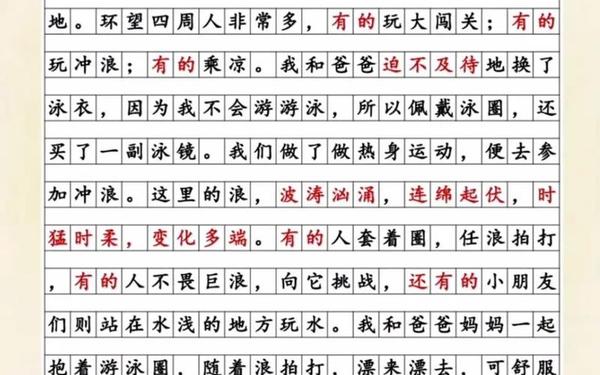 地。环望四周人非常多，有的玩大闯关；有的
玩冲浪；有的乘凉。我和爸爸迫不及待地换了
泳衣，因为我不会游游泳，所以佩戴泳圈，还
买了一副泳镜。我们做了做热身运动，便去参
加冲浪。这里的浪，波涛汹涌，连绵起伏，时
猛时柔，变化多端。有的人套着圈，任浪拍打
，有的人不畏巨浪，向它挑战，还有的小朋友
们则站在水浅的地方玩水。我和爸爸妈妈一起
抱着游泳圈，随着浪拍打，漂来漂去，可舒服